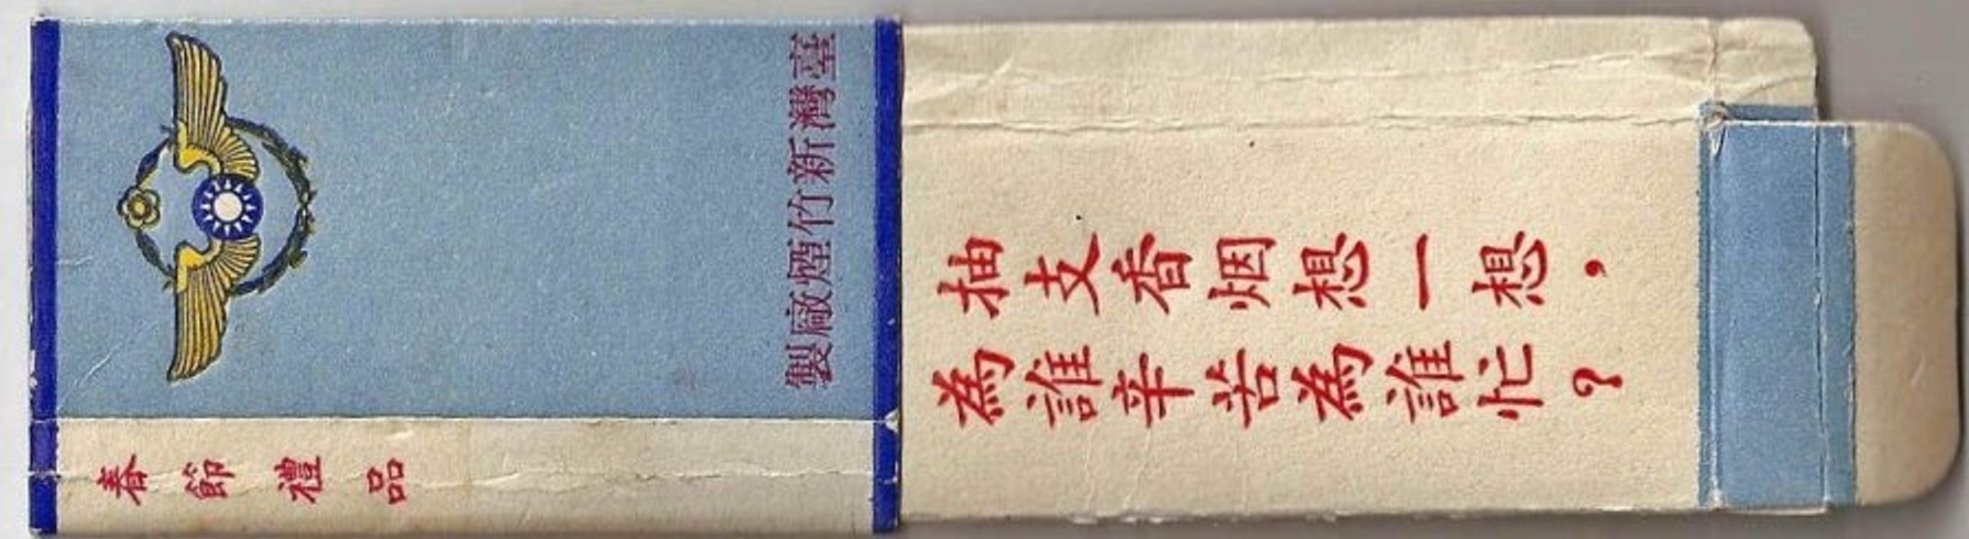 臺灣新竹煙廠製
春節禮品
抽支香烟想一想，
為誰辛苦為誰忙？